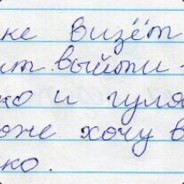 ке визёт
ит выйти
но и гуля
оже хочу в
ко.